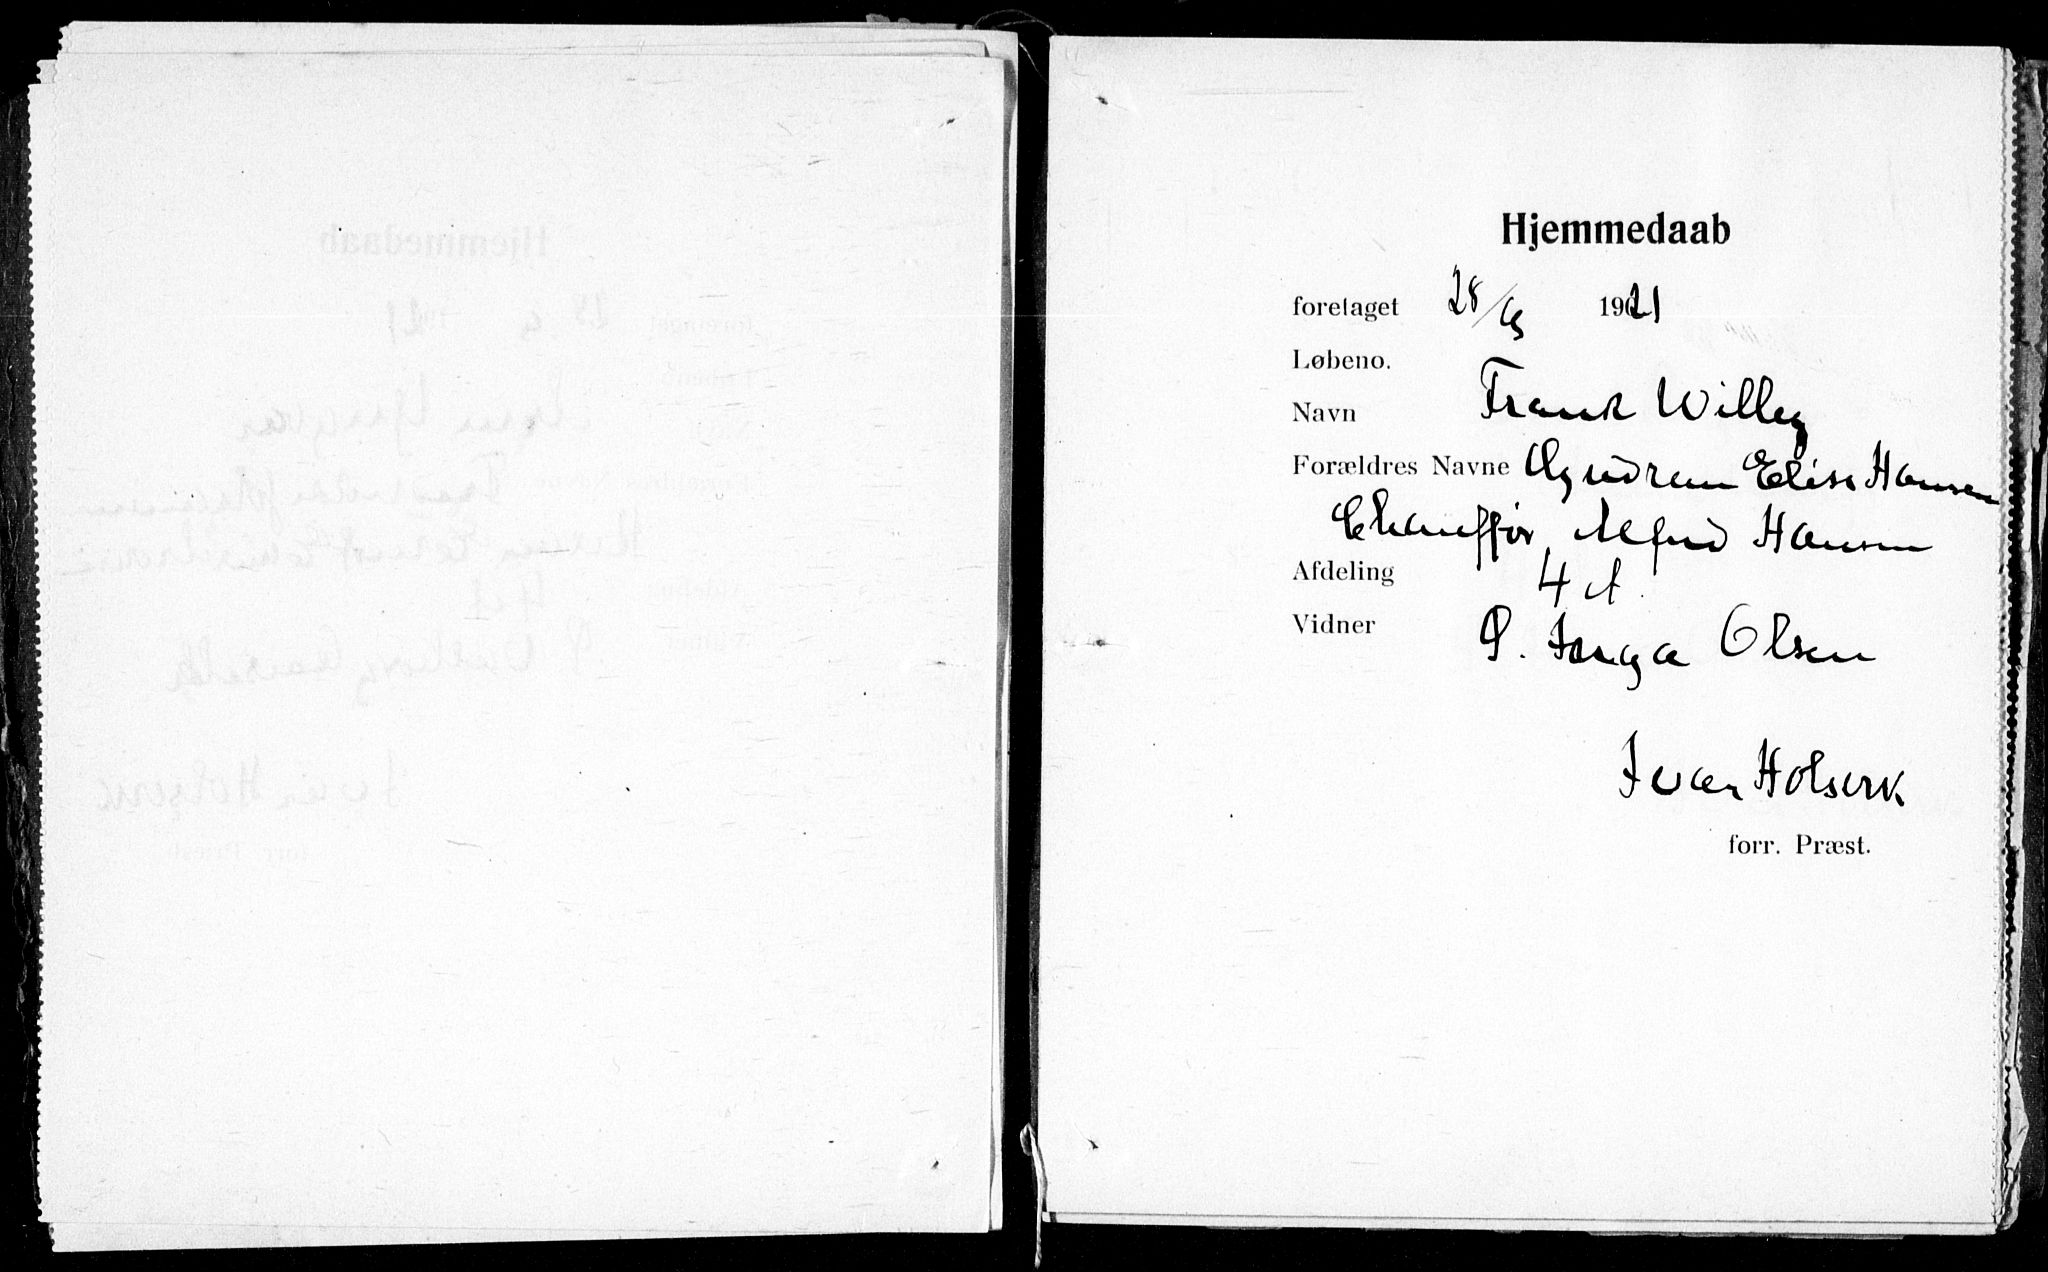 Hjemmedaab
foretaget 28/6 1921
Løbeno.
Navn Frank Willy
Forældres Navne Elise Hansen
Chauffør Alfred Hansen
Afdeling 4 A
Vidner S. Inga Olsen
Ivar Holsvik
forr. Præst.